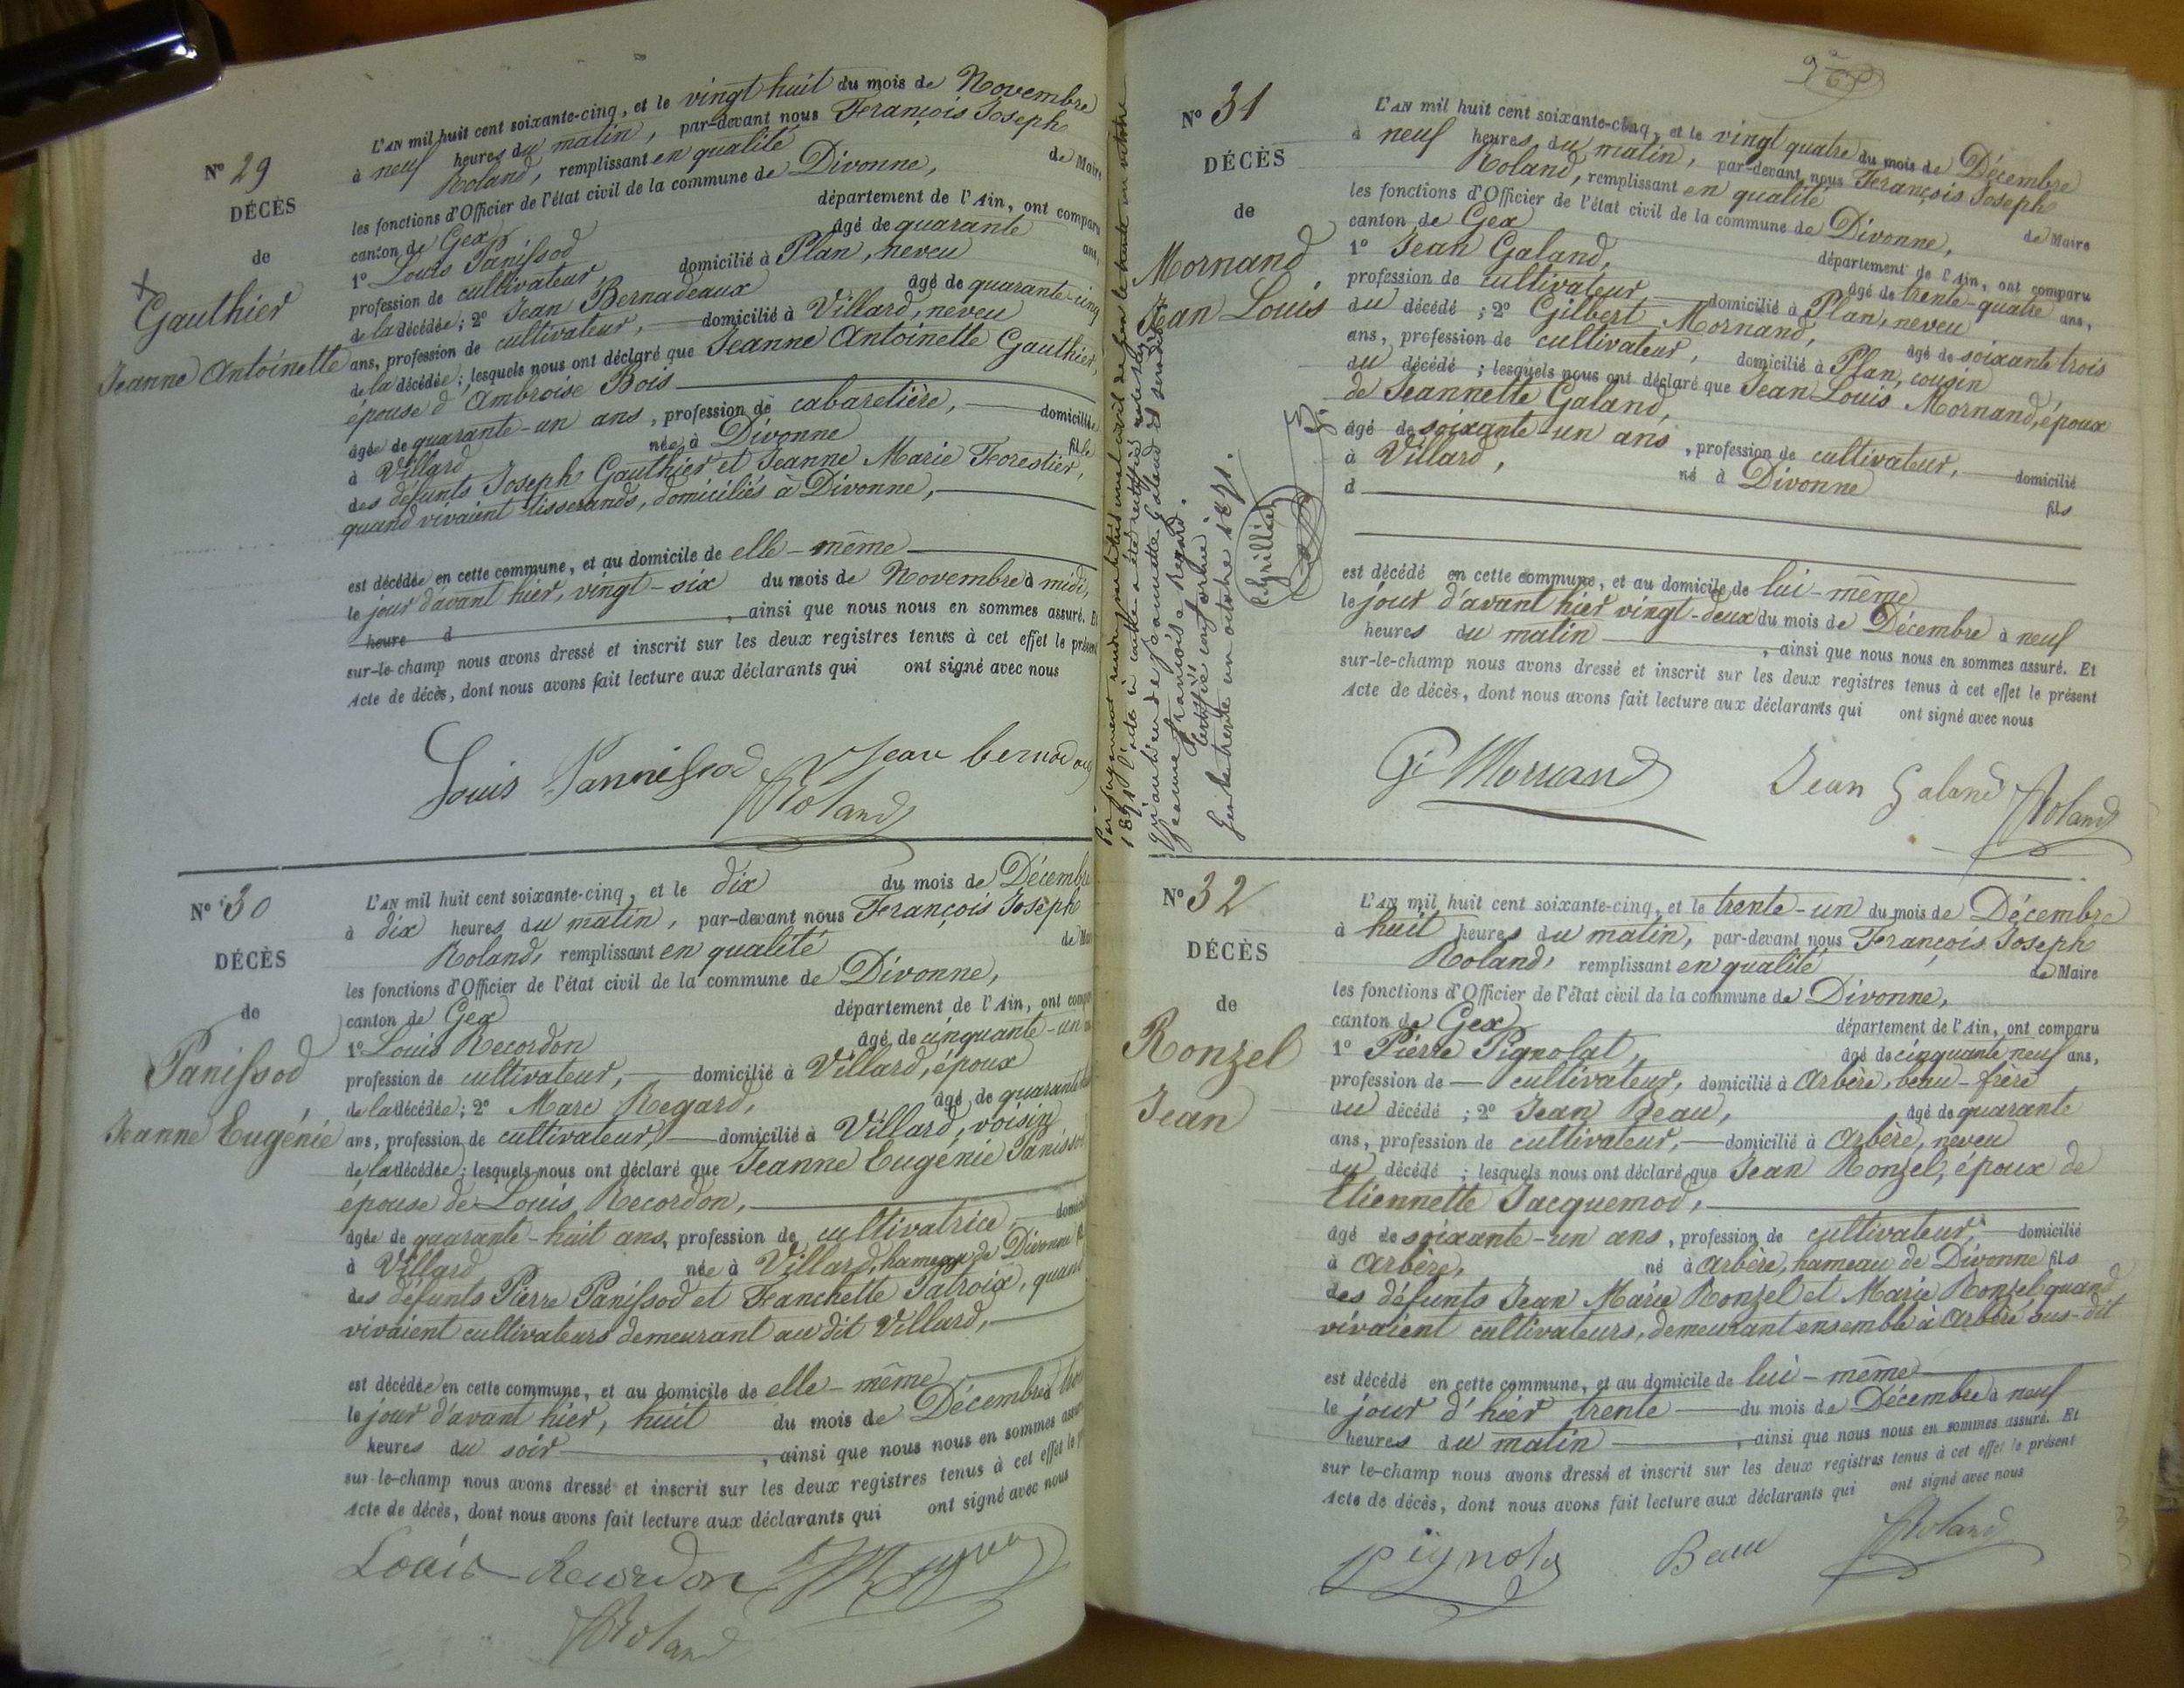 N° 29
DÉCÈS
de
Gauthier
Jeanne Antoinette
L'AN mil huit cent soixante-cinq, et le vingt huit du mois de Novembre
à neuf heures du matin, par-devant nous François Joseph
Roland, remplissant en qualité de Maire
les fonctions d'Officier de l'état civil de la commune de Divonne,
canton de Gex département de l'Ain, ont comparu
1° Louis Panissod âgé de quarante ans,
profession de cultivateur, domicilié à Plan, neveu
de la décédée; 2° Jean Bernadeaux âgé de quarante-cinq
ans, profession de cultivateur, domicilié à Villard, neveu
de la décédée; lesquels nous ont déclaré que Jeanne Antoinette Gauthier,
épouse d'Ambroise Bois
âgée de quarante-un ans, profession de cabaretière, domiciliée
à Villard née à Divonne fille
des défunts Joseph Gauthier et Jeanne Marie Forestier,
quand vivaient tisserands, domiciliés à Divonne,
est décédée en cette commune, et au domicile de elle-même
le jour d'avant hier, vingt-six du mois de Novembre à midi,
heure d , ainsi que nous nous en sommes assuré. Et
sur-le-champ nous avons dressé et inscrit sur les deux registres tenus à cet effet le présent
Acte de décès, dont nous avons fait lecture aux déclarants qui ont signé avec nous
Louis Pannissod Jean bernad
Roland
N° 30
DÉCÈS
de
Panissod
Jeanne Eugénie
L'AN mil huit cent soixante-cinq, et le dix du mois de Décembre
à dix heures du matin, par-devant nous François Joseph
Roland, remplissant en qualité de Mai
les fonctions d'Officier de l'état civil de la commune de Divonne,
canton de Gex département de l'Ain, ont comp
1° Louis Recordon âgé de cinquante-un
profession de cultivateur, domicilié à Villard, époux
de la décédée; 2° Marc Regard, âgé de quarante
ans, profession de cultivateur, domicilié à Villard, voisin
de la décédée; lesquels nous ont déclaré que Jeanne Eugénie Panisso
épouse de Louis Recordon,
âgée de quarante-huit ans, profession de cultivatrice, domici
à Villard née à Villard, hameau de Divonne fil
des défunts Pierre Panissod et Franchette Patroix, quand
vivaient cultivateurs demeurant au dit Villard,
est décédée en cette commune, et au domicile de elle-même
le jour d'avant hier, huit du mois de Décembre à
heures du soir , ainsi que nous nous en sommes assu
sur-le-champ nous avons dressé et inscrit sur les deux registres tenus à cet effet le p
Acte de décès, dont nous avons fait lecture aux déclarants qui ont signé avec nous
Louis Recordon
Roland
Par jugement rendu par le tribunal civil de Gex le trente un octobre
1891 l'acte ci contre a été rectifié
qu'au lieu de Jeannette Galand
Jeanne Françoise Regard.
Certifié conforme
Gex le trente un octobre 1891.
N° 31
DÉCÈS
de
Mornand
Jean Louis
L'AN mil huit cent soixante-cinq, et le vingt quatre du mois de Décembre
à neuf heures du matin, par-devant nous François Joseph
Roland, remplissant en qualité de Maire
les fonctions d'Officier de l'état civil de la commune de Divonne,
canton de Gex département de l'Ain, ont comparu
1° Jean Galand, âgé de trente-quatre ans,
profession de cultivateur domicilié à Plan, neveu
du décédé ; 2° Gilbert Mornand, âgé de soixante trois
ans, profession de cultivateur, domicilié à Plan, cousin
du décédé ; lesquels nous ont déclaré que Jean Louis Mornand, époux
de Jeannette Galand,
âgé de soixante-un ans, profession de cultivateur, domicilié
à Villard, né à Divonne fils
d
est décédé en cette commune, et au domicile de lui-même
le jour d'avant hier vingt-deux du mois de Décembre à neuf
heures du matin , ainsi que nous nous en sommes assuré. Et
sur-le-champ nous avons dressé et inscrit sur les deux registres tenus à cet effet le présent
Acte de décès, dont nous avons fait lecture aux déclarants qui ont signé avec nous
G Mornand Jean Galand Roland
N° 32
DÉCÈS
de
Ronzel
Jean
L'AN mil huit cent soixante-cinq, et le trente-un du mois de Décembre
à huit heures du matin, par-devant nous François Joseph
Roland, remplissant en qualité de Maire
les fonctions d'Officier de l'état civil de la commune de Divonne,
canton de Gex département de l'Ain, ont comparu
1° Pierre Pignolat, âgé de cinquante neuf ans,
profession de cultivateur, domicilié à Arbère, beau-frère
du décédé ; 2° Jean Beau, âgé de quarante
ans, profession de cultivateur, domicilié à Arbère, neveu
du décédé ; lesquels nous ont déclaré que Jean Ronzel, époux de
Etiennette Jacquemod,
âgé de soixante-un ans, profession de cultivateur, domicilié
à Arbère, né à Arbère, hameau de Divonne fils
des défunts Jean Marie Ronzel et Marie Ronzel quand
vivaient cultivateurs, demeurant ensemble à Arbère sus-dit
est décédé en cette commune, et au domicile de lui-même
le jour d'hier trente du mois de Décembre à neuf
heures du matin , ainsi que nous nous en sommes assuré. Et
sur le-champ nous avons dressé et inscrit sur les deux registres tenus à cet effet le présent
Acte de décès, dont nous avons fait lecture aux déclarants qui ont signé avec nous
Beau Roland